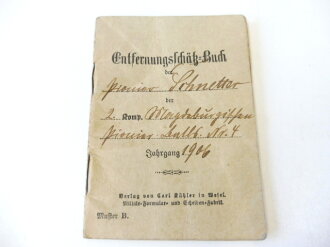 Entfernungsschätz-Buch
des
Pionier Schnetter
der
2. Komp. Magdeburgischen
Pionier Batls. Nr. 4
Jahrgang 1906
Verlag von Carl Kühler in Wesel.
Militär-Formular- und Scheiben-Fabrik.
Muster B.